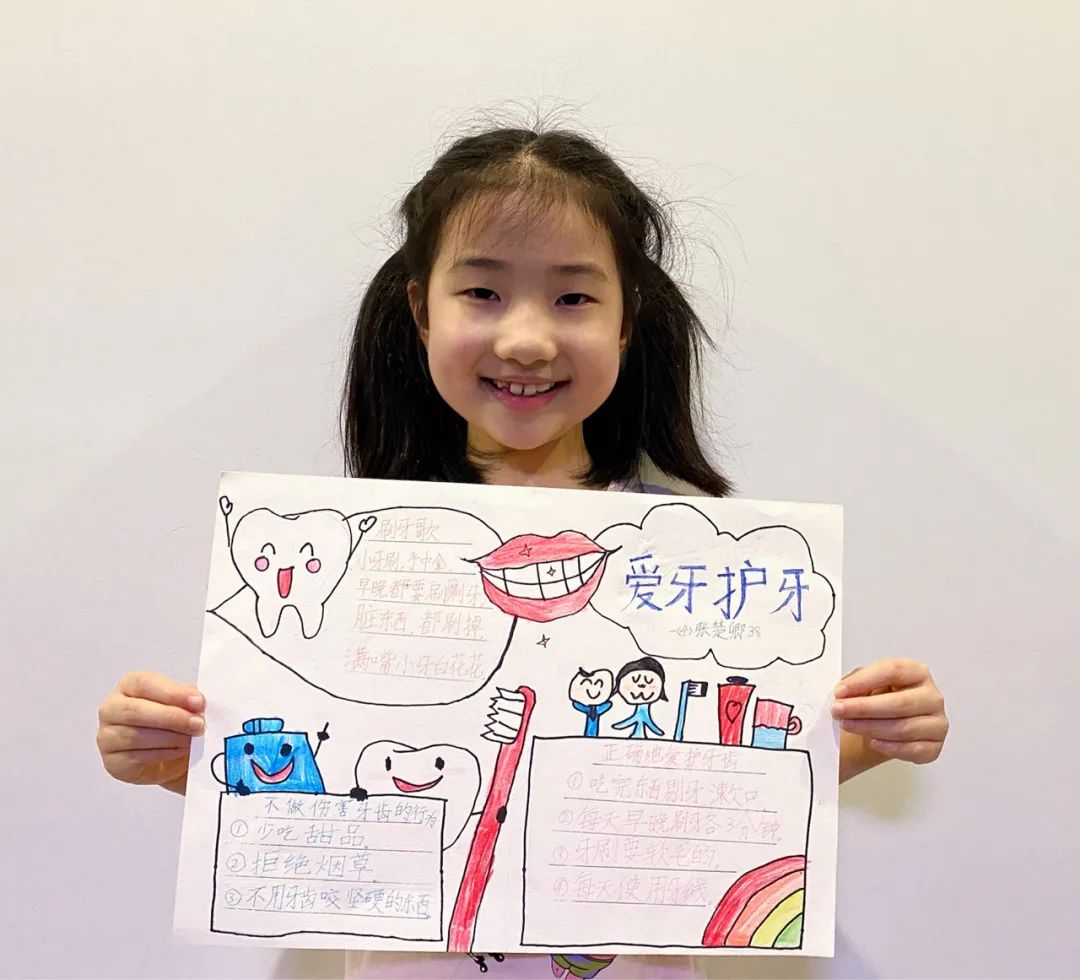 刷牙歌
小牙刷,手中拿,
早晚都要刷刷牙,
脏东西,都刷掉,
满嘴小牙白花花.
爱牙护牙
一(4)张楚卿38
不做伤害牙齿的行为
①少吃甜品.
②拒绝烟草.
③不用牙齿咬坚硬的东西.
正确地爱护牙齿
①吃完东西刷牙漱口.
②每天早晚刷牙各3分钟.
③牙刷要软毛的.
④每天使用牙线.